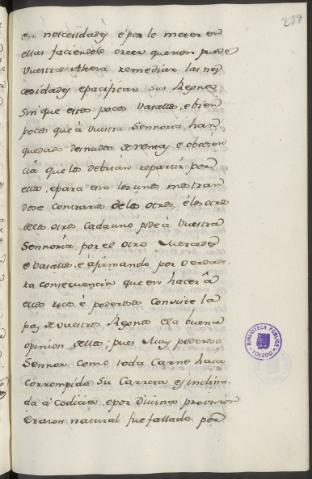 289
en nescesidades é por le meter en
ellas faciendole creer que non puede
Vuestra Alteza remediar las nes
cesidades e pacificar sus Regnos
sin que estos pocos Vasallos, e bien
pocos que á Vuestra Sennoria han
quedado desnudos de renta e obedien
cia que los debrian repartir por
ellos, e para esto los unos mostran
dose contrarios de los otros, é los otros
de los otros cada uno pide á Vuestra
Sennoria, por el otro
é Vasallos, e afirmando por verdade
ra consecuencia que en hacer á
ellos ricos é poderosos consiste la
paz de vuestros Regnos e la buena
opinion dellos; pues Muy poderoso
Sennor como toda Carne haia
corrompido su Carrera es inclina
da á codicia, e por Divinas provision
e razon natural fue fallado por
BIBLIOTECA PUBLICA
TOLEDO